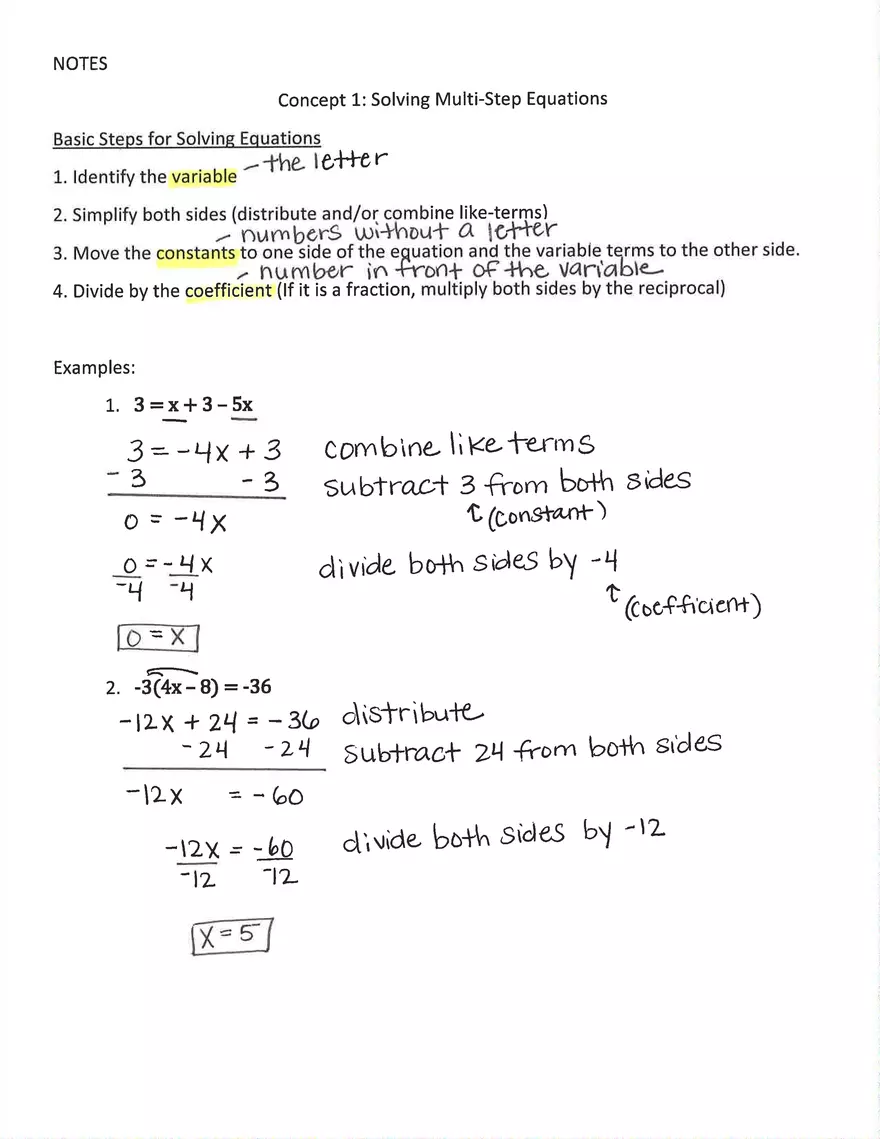 NOTES
Concept 1: Solving Multi-Step Equations
Basic Steps for Solving Equations
1. Identify the variable – the letter
2. Simplify both sides (distribute and/or combine like-terms)
– numbers without a letter
3. Move the constants to one side of the equation and the variable terms to the other side.
– number in front of the variable
4. Divide by the coefficient (If it is a fraction, multiply both sides by the reciprocal)
Examples:
1. 3 = x + 3 – 5x
3 = -4x + 3 combine like terms
- 3 - 3 subtract 3 from both sides
0 = -4x ↑ (constant)
0 = -4x divide both sides by -4
-4 -4 ↑ (coefficient)
0 = x
2. -3(4x – 8) = -36
-12x + 24 = -36 distribute
- 24 - 24 subtract 24 from both sides
-12x = -60
-12x = -60 divide both sides by -12
-12 -12
x = 5